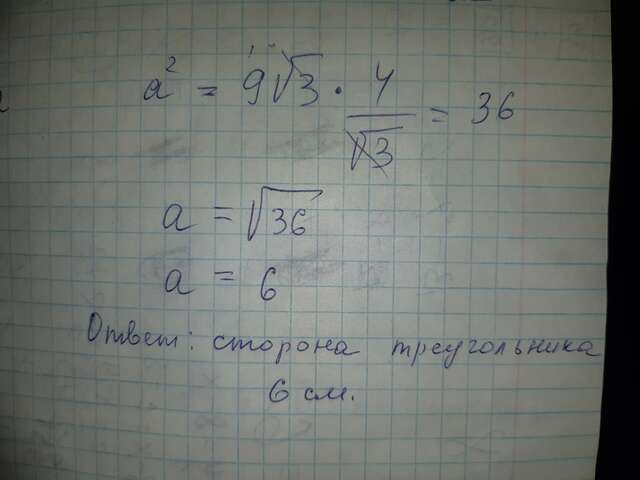 a² = 9√3 · 4/√3 = 36
a = √36
a = 6
Ответ: сторона треугольника
6 см.